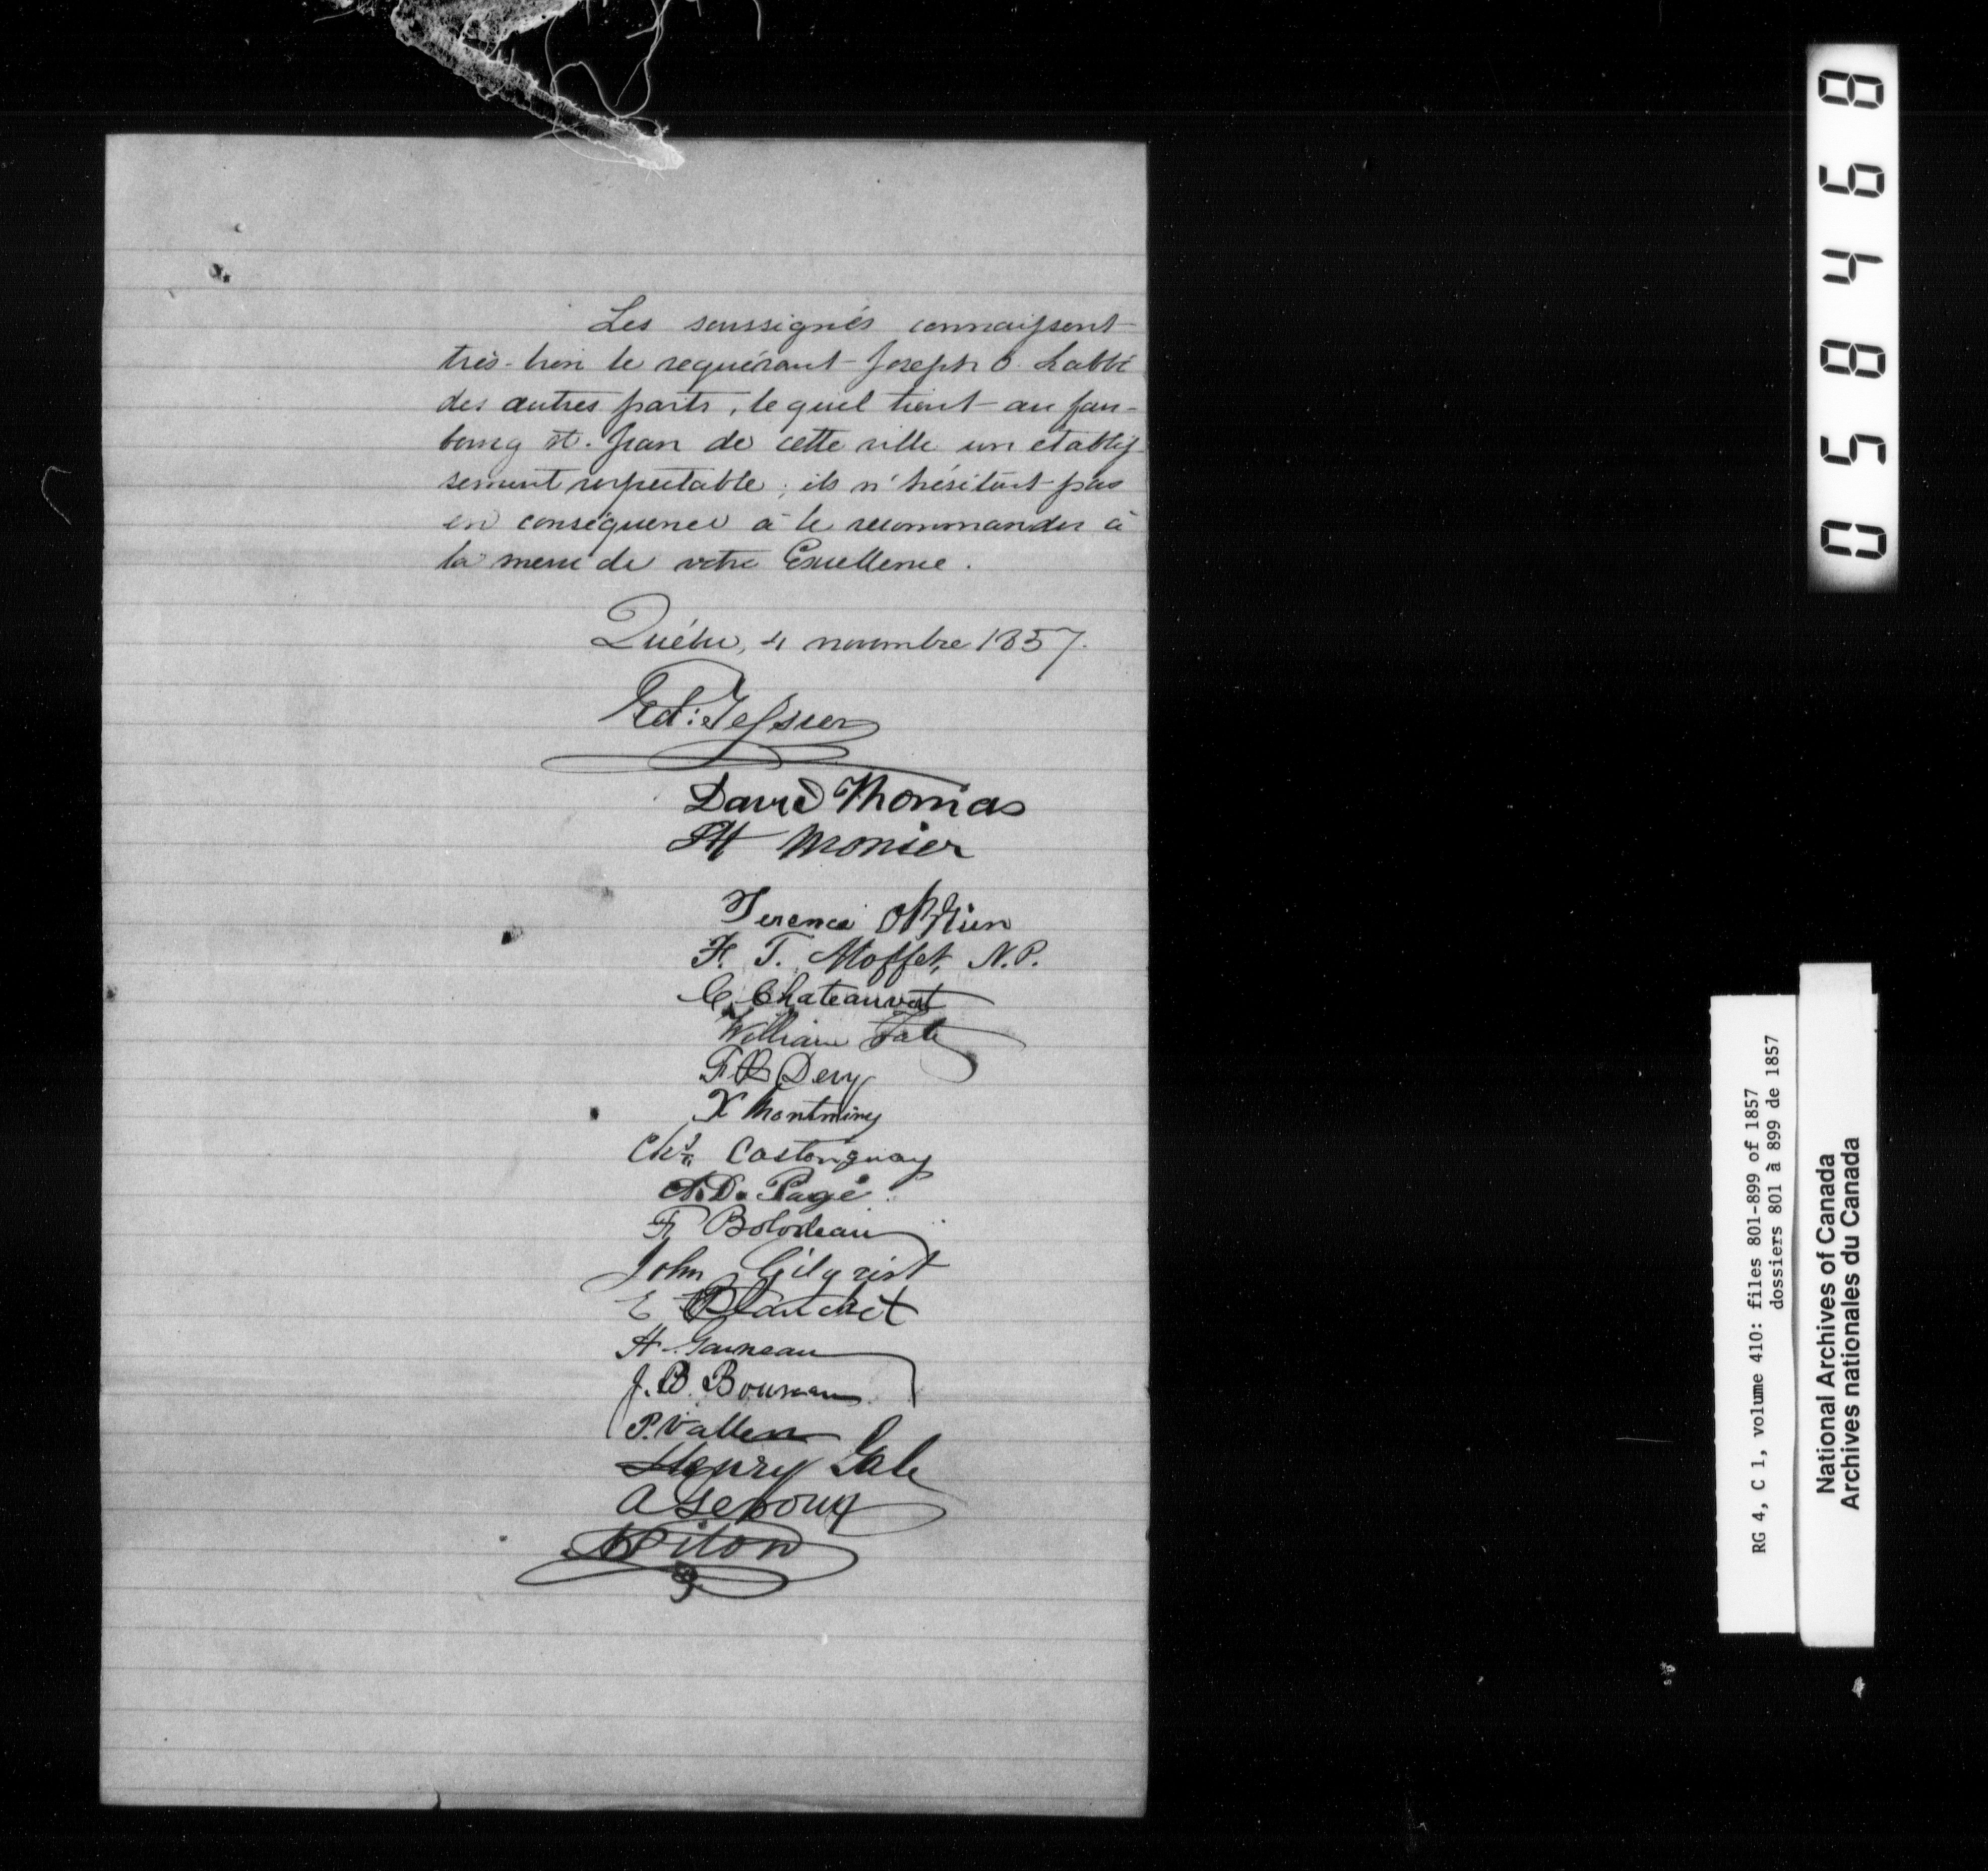 Les soussignés connaissent
très-bien le requérant Joseph O. Labbé
des autres parts, lequel tient au fau-
bourg St. Jean de cette ville un établis
sement respectable ; ils n'hésitent pas
en conséquence à le recommander à
la merci de votre Excellence.
Québec, 4 novembre 1857.
Ed: Tessier
David Thomas
Monier
Terence O'Brien
F. T. Moffet, N.P.
C. Chateauvert
William Tate
Dery
X Montminy
Castonguay
A.D. Pagé
F Bolodeau
John Gilgrist
E Blanchet
H Garneau
J. B.
P. Vallere
Henry Gale
A Ledoux
Piton
058468
RG 4, C 1, volume 410: files 801-899 of 1857
dossiers 801 à 899 de 1857
National Archives of Canada
Archives nationales du Canada